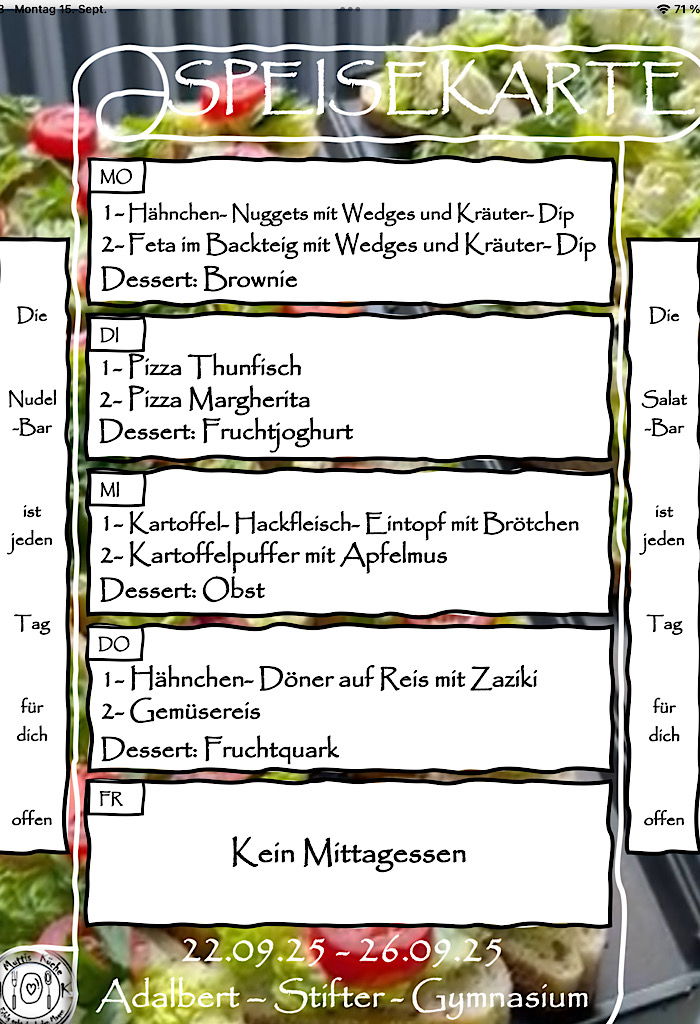 Montag 15. Sept.
71 %
SPEISEKARTE
MO
1- Hähnchen- Nuggets mit Wedges und Kräuter- Dip
2- Feta im Backteig mit Wedges und Kräuter- Dip
Dessert: Brownie
DI
1- Pizza Thunfisch
2- Pizza Margherita
Dessert: Fruchtjoghurt
MI
1- Kartoffel- Hackfleisch- Eintopf mit Brötchen
2- Kartoffelpuffer mit Apfelmus
Dessert: Obst
DO
1- Hähnchen- Döner auf Reis mit Zaziki
2- Gemüsereis
Dessert: Fruchtquark
FR
Kein Mittagessen
Die
Nudel
-Bar
ist
jeden
Tag
für
dich
offen
Die
Salat
-Bar
ist
jeden
Tag
für
dich
offen
22.09.25 - 26.09.25
Adalbert – Stifter - Gymnasium
Muttis Küche